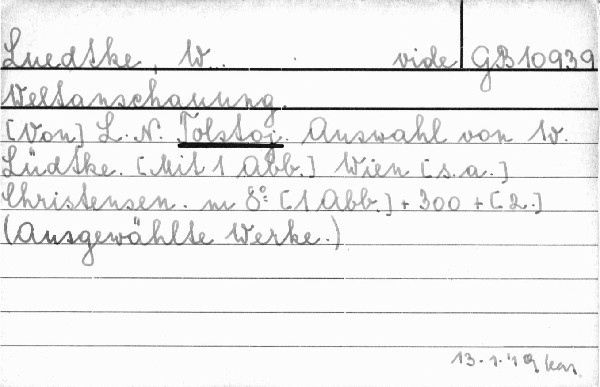 Luedtke, W. vide GB10939
Weltanschauung.
[Von] L. N. Tolstoj. Auswahl von W.
Lüdtke. [Mit 1 Abb.] Wien [s.a.]
Christensen. m 8° [1 Abb.] + 300 + [2.]
(Ausgewählte Werke.)
13.1.